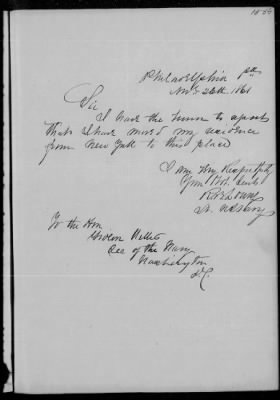 Philadelphia Pa
Nov 26th 1861
Sir
I have the honor to report
that I have moved my residence
from New York to this place
I am Very Respectfully
Your Obt. Servt
U. S. Navy
To the Hon
Gideon Welles
Sec of the Navy
Washington
D.C.